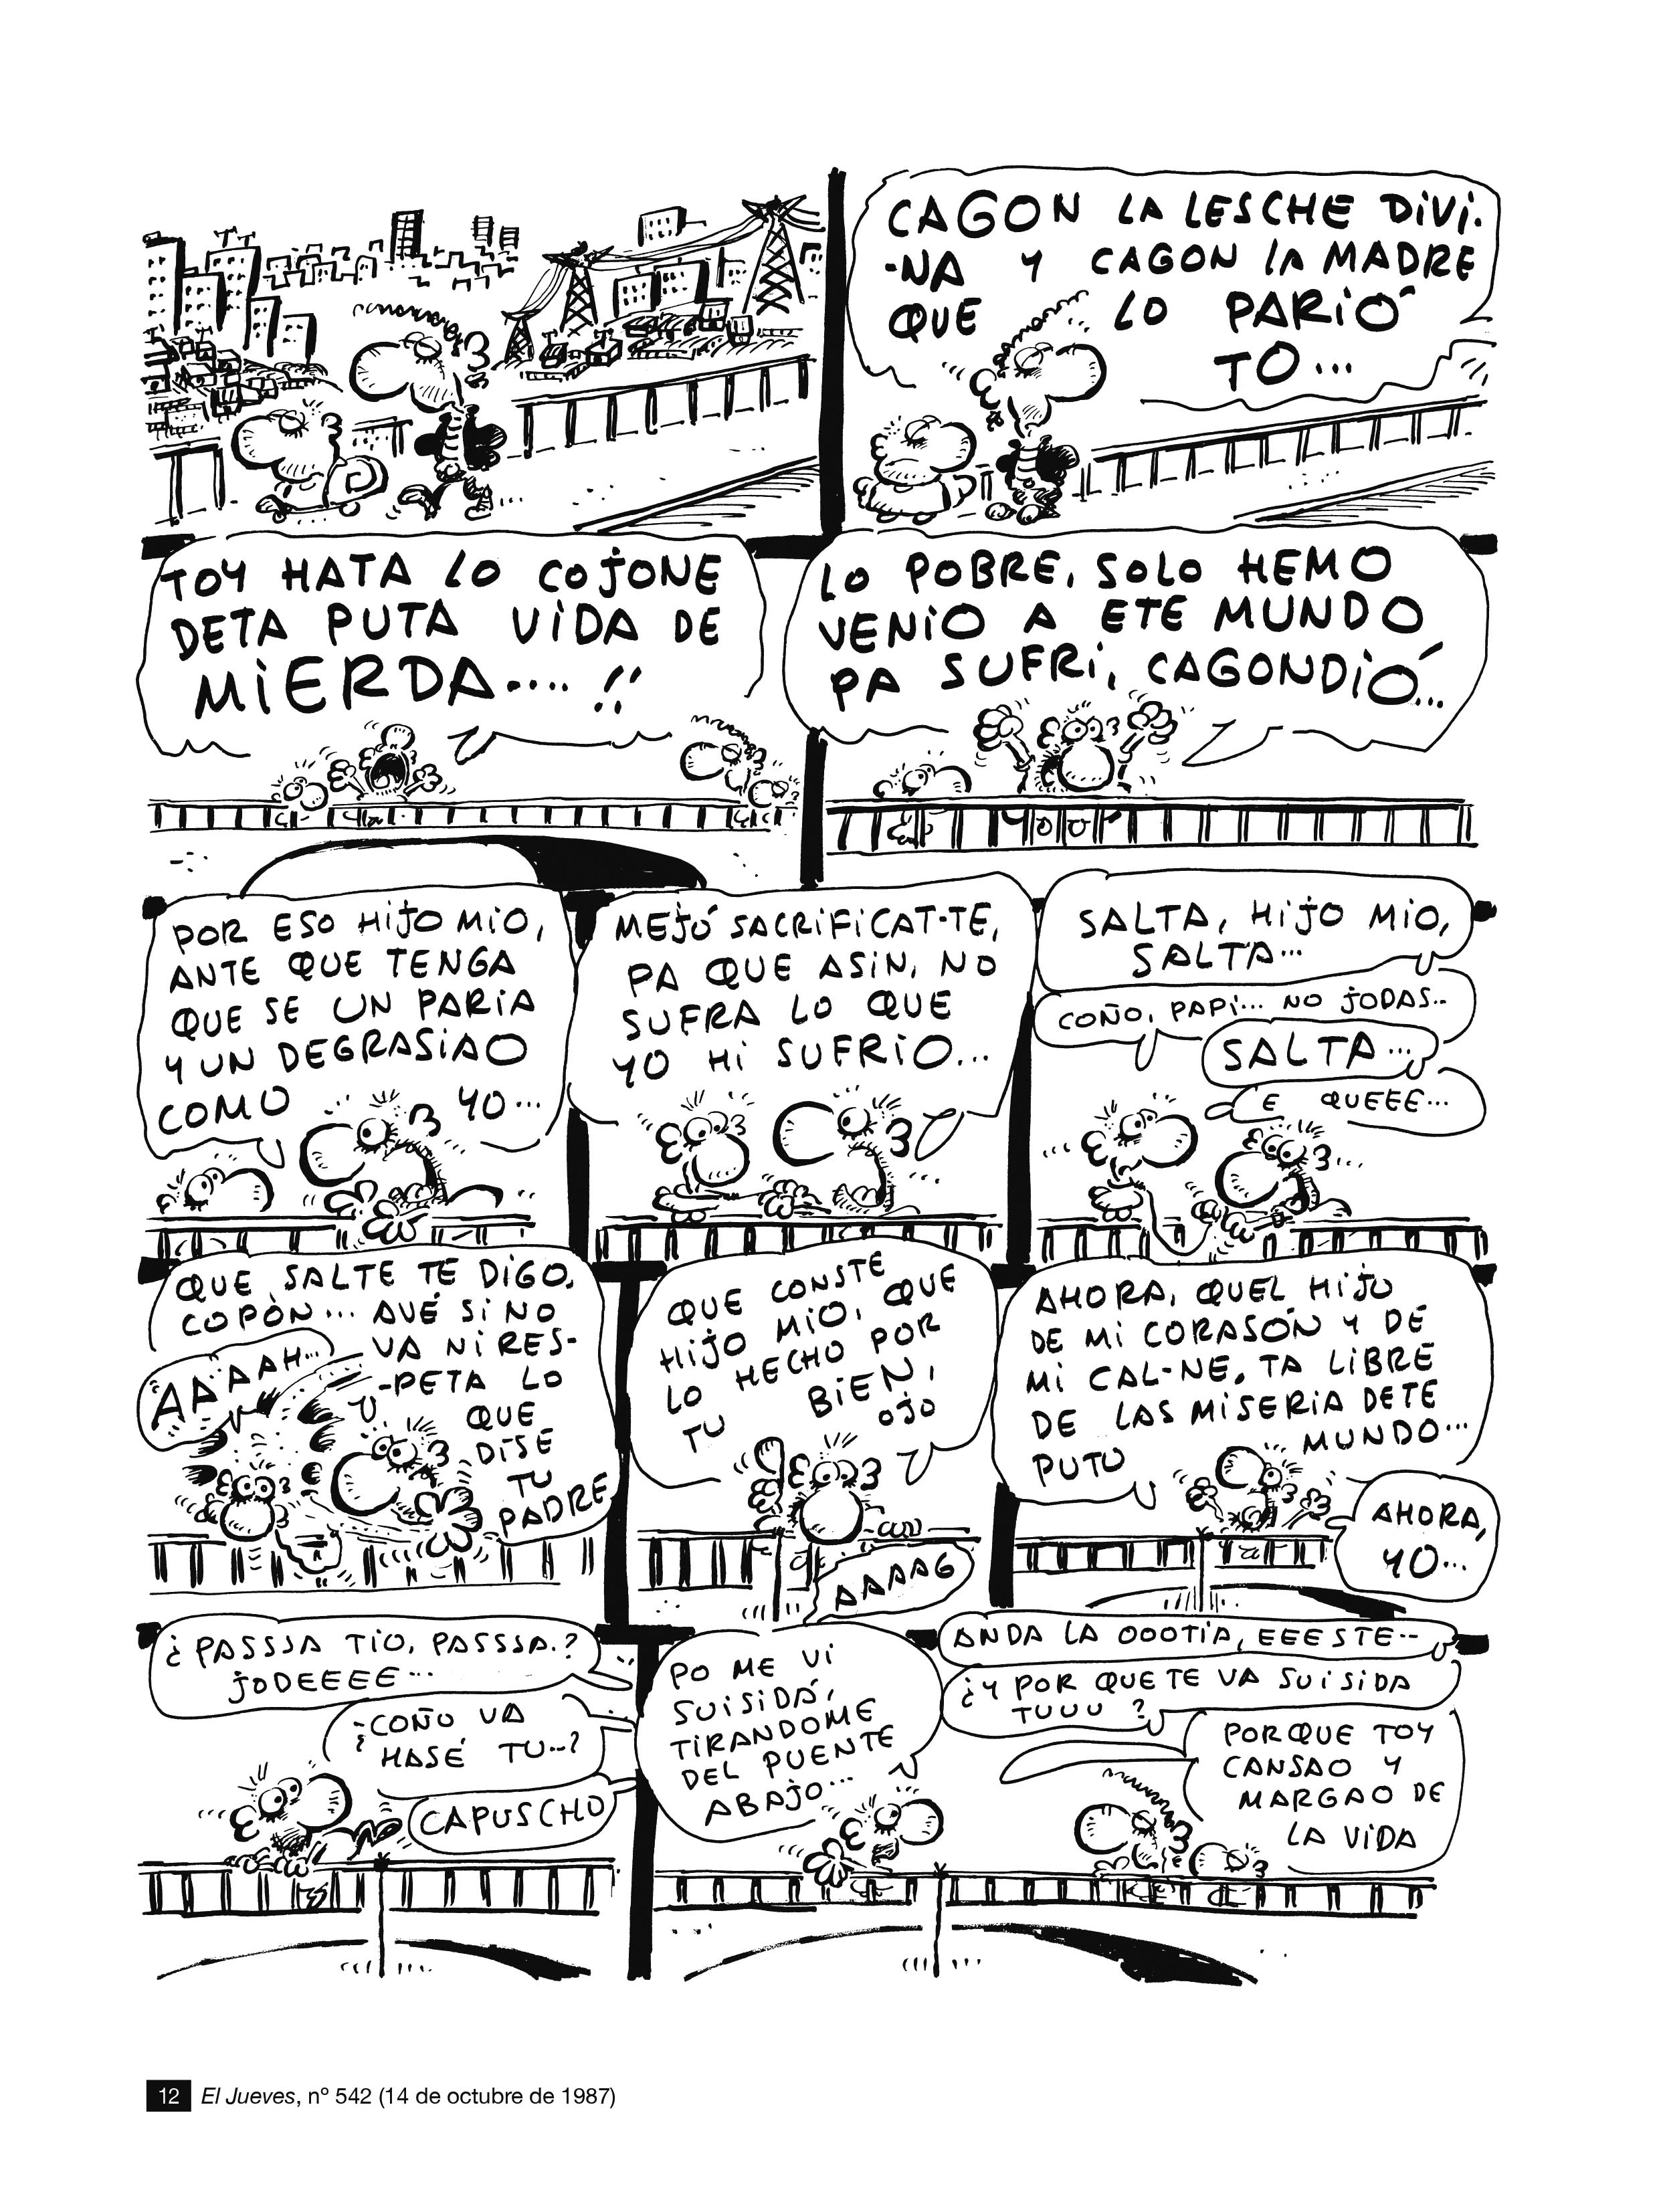 CAGON LA LESCHE DIVI-
-NA Y CAGON LA MADRE
QUE LO PARIÓ
TO...
TOY HATA LO COJONE
DETA PUTA VIDA DE
MIERDA....!!
LO POBRE, SOLO HEMO
VENIO A ETE MUNDO
PA SUFRÍ, CAGONDIÓ...
POR ESO HIJO MIO,
ANTE QUE TENGA
QUE SE UN PARIA
Y UN DEGRASIAO
COMO YO...
MEJÓ SACRIFICAT-TE,
PA QUE ASIN, NO
SUFRA LO QUE
YO HI SUFRIO...
SALTA, HIJO MIO,
SALTA...
COÑO, PAPI... NO JODAS..
SALTA...
E QUEEE...
QUE SALTE TE DIGO,
COPÓN... AVÉ SI NO
VA NI RES-
-PETA LO
QUE
DISE
TU
PADRE
AAAAAH...
QUE CONSTE
HIJO MIO, QUE
LO HECHO POR
TU BIEN,
OJO
AAAAG
AHORA, QUEL HIJO
DE MI CORASÓN Y DE
MI CAL-NE, TA LIBRE
DE LAS MISERIA DETE
PUTO MUNDO...
AHORA,
YO...
¿PASSSA TIO, PASSSA.?
JODEEEE...
¿COÑO VA
HASÉ TU..?
CAPUSCHO
PO ME VI
SUISIDÁ,
TIRANDOME
DEL PUENTE
ABAJO...
ANDA LA OOOTIA, EEESTE..
¿Y POR QUE TE VA SUISIDA
TUUU?
PORQUE TOY
CANSAO Y
MARGAO DE
LA VIDA
12 El Jueves, nº 542 (14 de octubre de 1987)